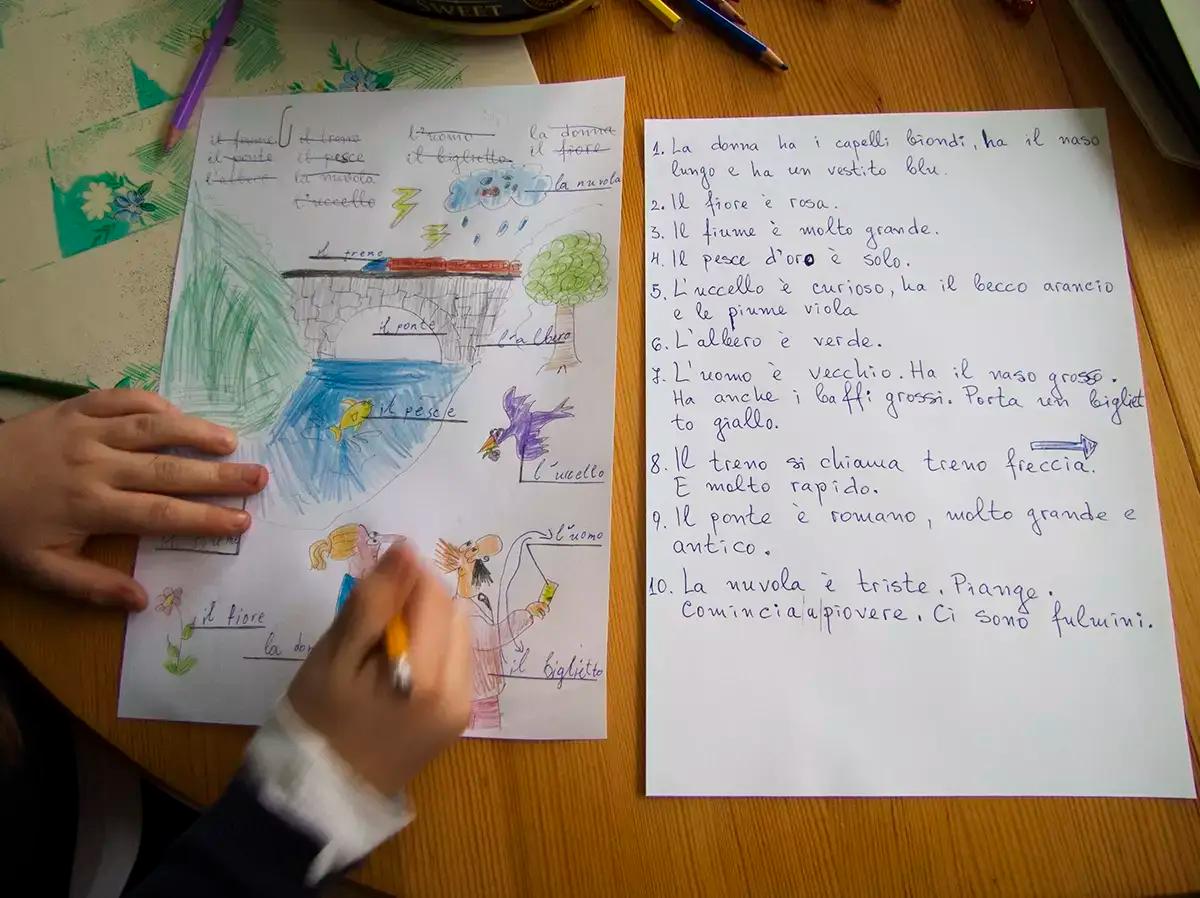 SWEET
il fiume il treno l'uomo la donna
il ponte il pesce il biglietto il fiore
l'albero la nuvola
l'uccello
la nuvola
il treno
il ponte
l'albero
il pesce
l'uccello
l'uomo
il fiume
il fiore
la don
il biglietto
1. La donna ha i capelli biondi, ha il naso
lungo e ha un vestito blu.
2. Il fiore è rosa.
3. Il fiume è molto grande.
4. Il pesce d'oro è solo.
5. L'uccello è curioso, ha il becco arancio
e le piume viola
6. L'albero è verde.
7. L'uomo è vecchio. Ha il naso grosso.
Ha anche i baffi grossi. Porta un bigliet
to giallo.
8. Il treno si chiama treno freccia.
E molto rapido.
9. Il ponte è romano, molto grande e
antico.
10. La nuvola è triste. Piange.
Comincia a piovere. Ci sono fulmini.